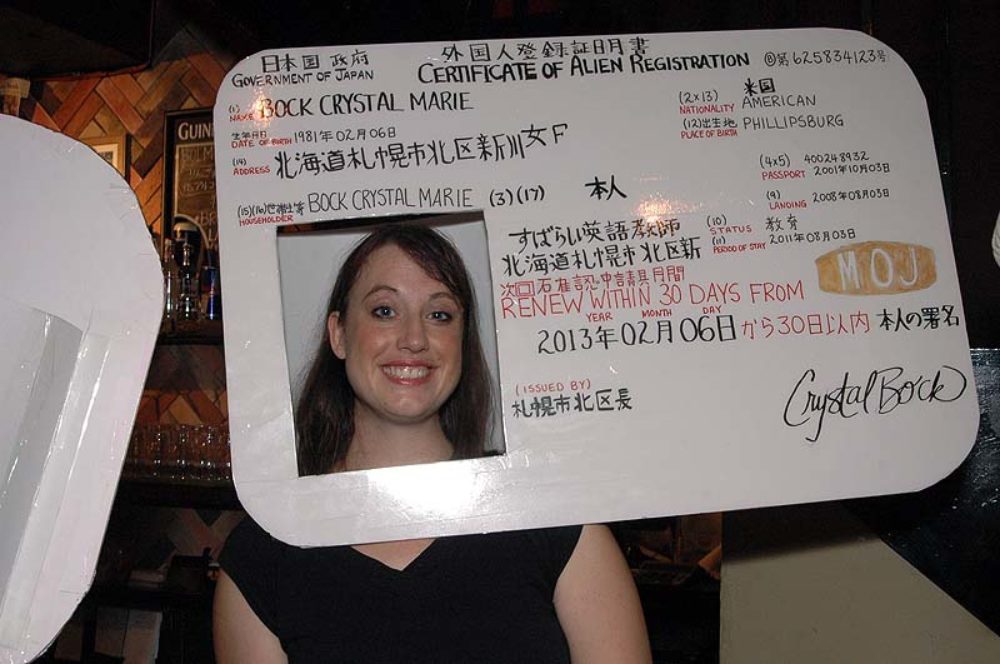 日本国政府
GOVERNMENT OF JAPAN
外国人登録証明書
CERTIFICATE OF ALIEN REGISTRATION
第625834123号
(1) NAME BOCK CRYSTAL MARIE
(2×13) NATIONALITY 米国 AMERICAN
生年月日 DATE OF BIRTH 1981年02月06日
女 F
(12)出生地 PLACE OF BIRTH PHILLIPSBURG
(14) ADDRESS 北海道札幌市北区新川
(4×5) PASSPORT 400248932 2001年10月03日
(15)(16) HOUSEHOLDER BOCK CRYSTAL MARIE (3)(17) 本人
(9) LANDING 2008年08月03日
すばらい英語教師
(10) STATUS 教育
北海道札幌市北区新
(11) PERIOD OF STAY 2011年08月03日
MOJ
次回
申請
期間
RENEW WITHIN 30 DAYS FROM
YEAR MONTH DAY
2013年02月06日から30日以内
本人の署名
(ISSUED BY)
札幌市北区長
Crystal Bock
GUIN